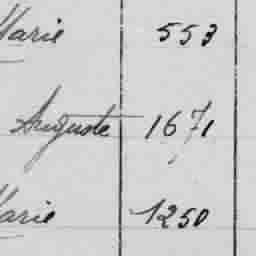 Marie 553
Auguste 1671
Marie 1250